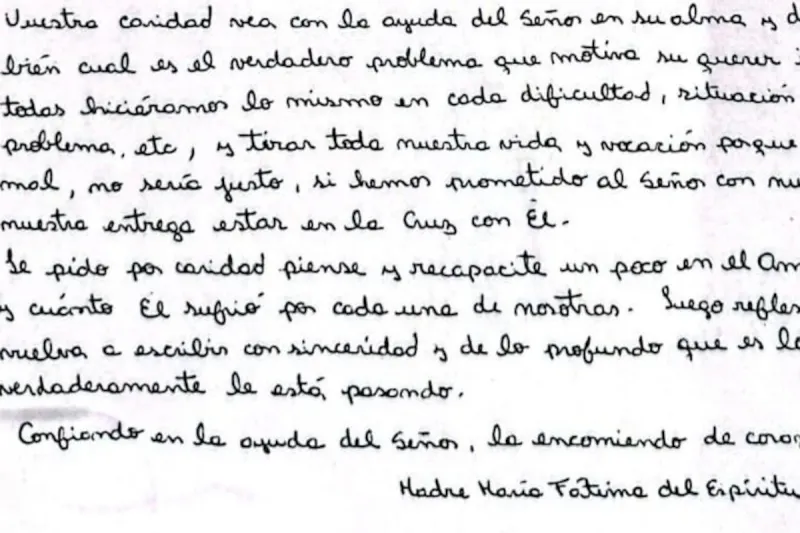 Vuestra caridad vea con la ayuda del Señor en su alma y d
bién cual es el verdadero problema que motiva su querer
todas hiciéramos lo mismo en cada dificultad, situación
problema, etc, y tirar toda nuestra vida y vocación porque
mal, no sería justo, si hemos prometido al Señor con nu
nuestra entrega estar en la Cruz con Él.
Le pido por caridad piense y recapacite un poco en el Am
y cuánto Él sufrió por cada una de nosotras. Luego refle
vuelva a escribir con sinceridad y de lo profundo que es lo
verdaderamente le está pasando.
Confiando en la ayuda del Señor, la encomiendo de coraz
Madre María Fatima del Espíritu